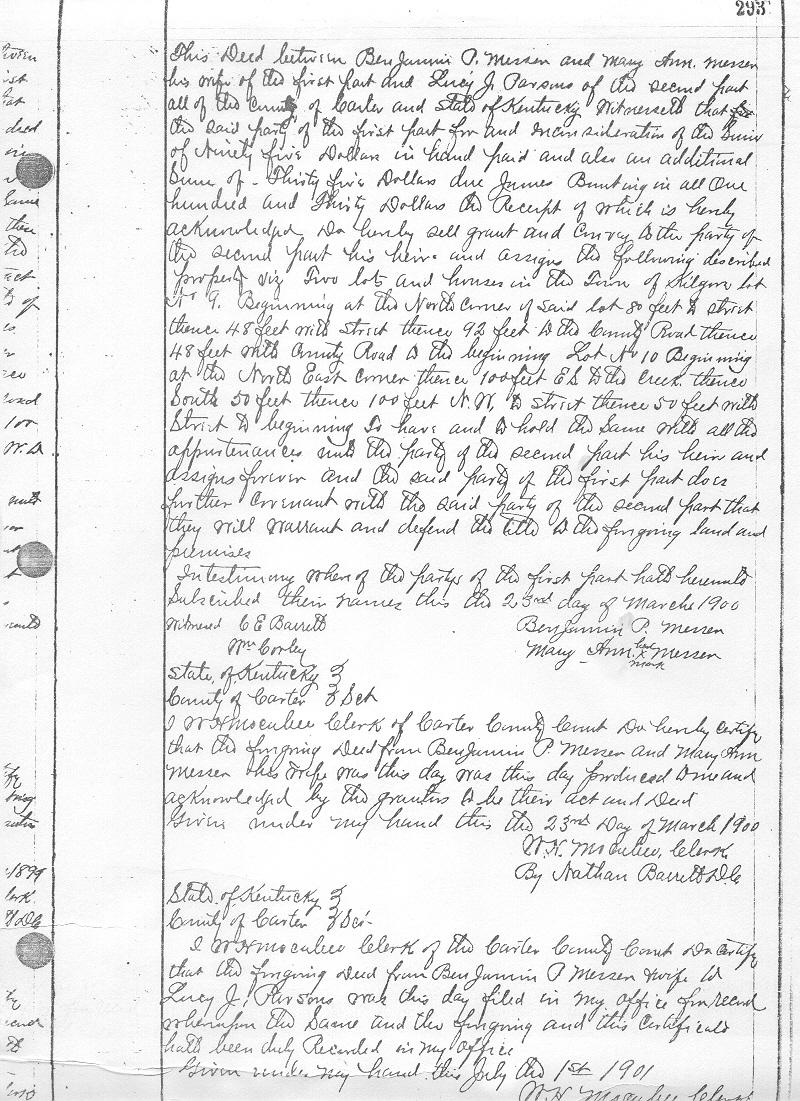 293
This Deed between Benjamin P. Messer and Mary Ann. Messer
his wife of the first part and Lucy J. Parsons of the second part
all of the County of Carter and State of Kentucky Witnesseth that for
the said party of the first part for and inconsideration of the Sum
of Ninety five Dollars in hand paid and also an additional
Sum of - Thirty five Dollars due James Bunting in all One
hundred and Thirty Dollars the Receipt of which is hereby
acknowledged Do hereby sell grant and Convey to the party of
the second part his heirs and assigns the following described
property viz Two lots and houses in the Town of Kilgore lot
No 9. Beginning at the North Corner of Said lot 80 feet to strict
thence 48 feet with Strict thence 92 feet to the County Road thence
48 feet with County Road to the beginning Lot No 10 Beginning
at the North East Corner thence 100 feet E S to the Creek thence
South 50 feet thence 100 feet N. W. to strict thence 50 feet with
Strict to beginning To have and to hold the Same with all the
appurtenances unto the party of the second part his heirs and
assigns forever and the said party of the first part does
further Covenant with the said party of the second part that
they will warrant and defend the title to the forgoing land and
premises
In testimony whereof the partys of the first part hath hereunto
Subscribed their names this the 23rd day of March 1900
Witnessed C E Barrett Benjamin P. Messer
Wm Conley Mary Ann her X mark Messer
State of Kentucky }
County of Carter } Sct
I W H Mocabee Clerk of Carter County Court Do hereby Certify
that the forgoing Deed from Benjamin P. Messer and Mary Ann
Messer his Wife was this day was this day produced to me and
acknowledged by the grantors to be their act and Deed
Given under my hand this the 23rd Day of March 1900
W. H. Mocabee, Clerk
By Nathan Barrett D.C
State of Kentucky }
County of Carter } Sct
I W H Mocabee Clerk of the Carter County Court Do Certify
that the forgoing Deed from Benjamin P Messer & wife to
Lucy J, Parsons was this day filed in my office for record
whereupon the Same and the forgoing and this Certificate
hath been duly Recorded in my office
Given under my hand this July the 1st 1901
W. H. Mocabee Clerk